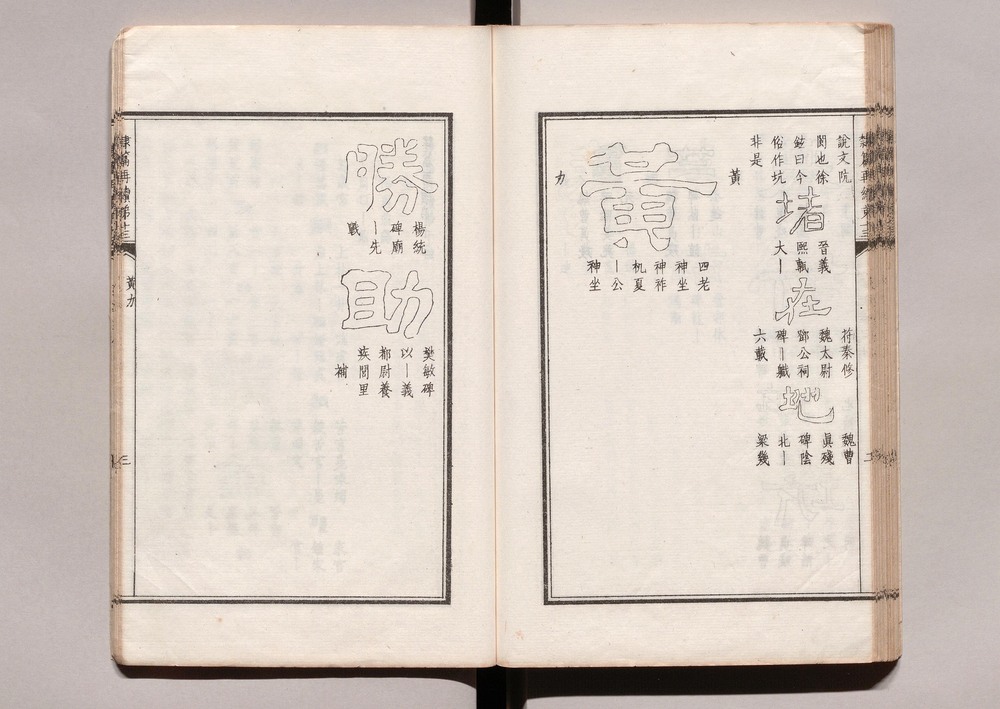 說文阬
閬也徐
鉉曰今
俗作坑
非是
堵
晉義
熙甎
大｜
在
苻秦修
魏太尉
鄧公祠
碑｜職
六載
地
魏曹
眞殘
碑陰
北｜
梁幾
黃
黃
四老
神坐
神祚
机夏
｜公
神坐
力
勝
楊統
碑廟
｜先
戰
助
樊敏碑
以｜義
都尉養
疾閭里
補
隸篇再續第十三
黃力
三